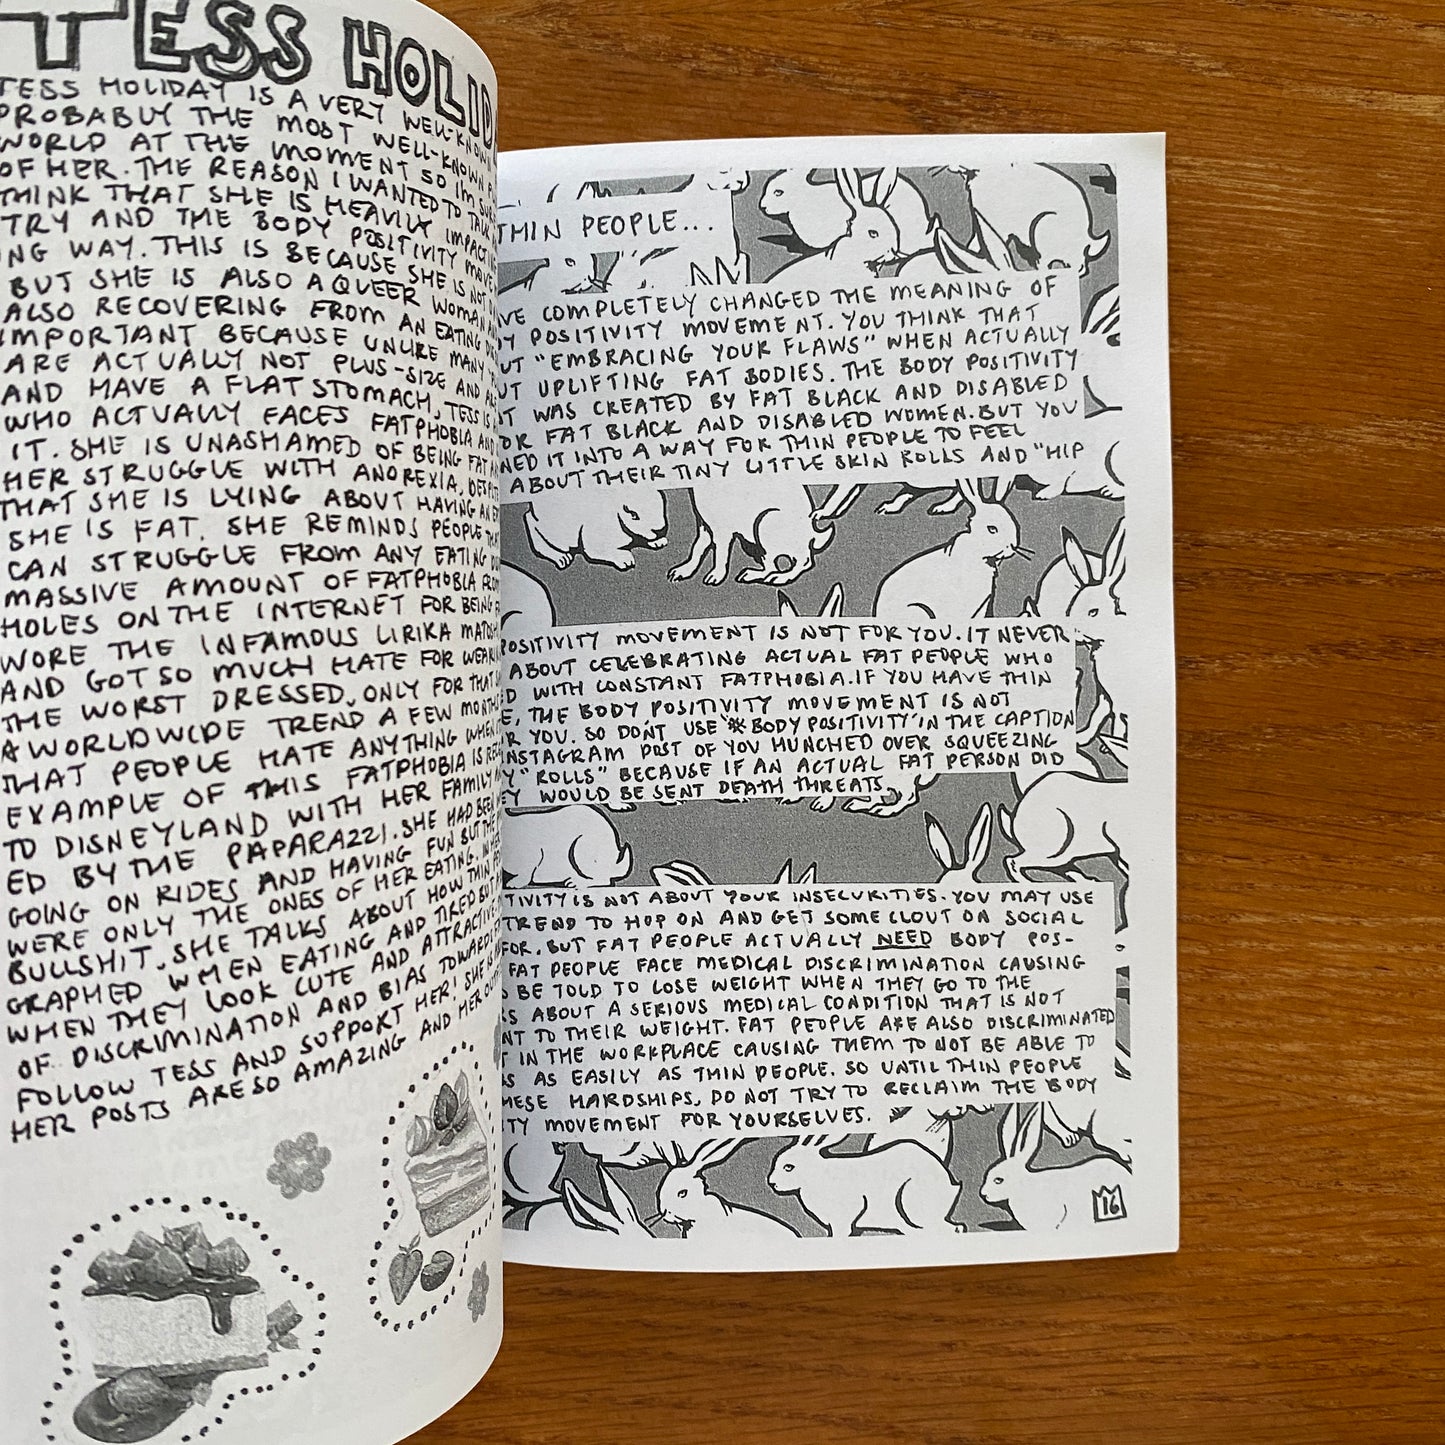 TESS HOLID
TESS HOLIDAY IS A VERY WELL-KNOWN
PROBABLY THE MOST WELL-KNOWN
WORLD AT THE MOMENT SO I'M SUR
OF HER. THE REASON I WANTED TO TALK
THINK THAT SHE IS HEAVILY IMPACTING
TRY AND THE BODY POSITIVITY MOVE
NG WAY. THIS IS BECAUSE SHE IS NOT
BUT SHE IS ALSO A QUEER WOMAN
ALSO RECOVERING FROM AN EATING
IMPORTANT BECAUSE UNLIKE MANY
ARE ACTUALLY NOT PLUS-SIZE AND
AND HAVE A FLAT STOMACH, TESS IS
WHO ACTUALLY FACES FATPHOBIA AND
IT. SHE IS UNASHAMED OF BEING FAT
HER STRUGGLE WITH ANOREXIA, DESPITE
THAT SHE IS LYING ABOUT HAVING AN
SHE IS FAT. SHE REMINDS PEOPLE THAT
CAN STRUGGLE FROM ANY EATING
MASSIVE AMOUNT OF FATPHOBIA FROM
HOLES ON THE INTERNET FOR BEING
WORE THE INFAMOUS LIRIKA MATOSH
AND GOT SO MUCH HATE FOR WEARIN
THE WORST DRESSED, ONLY FOR THAT
A WORLDWIDE TREND A FEW MONTHS
THAT PEOPLE HATE ANYTHING WHEN
EXAMPLE OF THIS FATPHOBIA IS
TO DISNEYLAND WITH HER FAMILY
ED BY THE PAPARAZZI. SHE HAD BEEN
GOING ON RIDES AND HAVING FUN BUT THE
WERE ONLY THE ONES OF HER EATING.
BULLSHIT. SHE TALKS ABOUT HOW THIN
GRAPHED WHEN EATING AND TIRED BUT
WHEN THEY LOOK CUTE AND ATTRACTIVE.
OF DISCRIMINATION AND BIAS TOWARDS
FOLLOW TESS AND SUPPORT HER! SHE IS
HER POSTS ARE SO AMAZING AND HER
THIN PEOPLE...
VE COMPLETELY CHANGED THE MEANING OF
DY POSITIVITY MOVEMENT. YOU THINK THAT
UT "EMBRACING YOUR FLAWS" WHEN ACTUALLY
UT UPLIFTING FAT BODIES. THE BODY POSITIVITY
T WAS CREATED BY FAT BLACK AND DISABLED
OR FAT BLACK AND DISABLED WOMEN. BUT YOU
NED IT INTO A WAY FOR THIN PEOPLE TO FEEL
ABOUT THEIR TINY LITTLE SKIN ROLLS AND "HIP
POSITIVITY MOVEMENT IS NOT FOR YOU. IT NEVER
ABOUT CELEBRATING ACTUAL FAT PEOPLE WHO
D WITH CONSTANT FATPHOBIA. IF YOU HAVE THIN
E, THE BODY POSITIVITY MOVEMENT IS NOT
R YOU. SO DON'T USE "#BODYPOSITIVITY" IN THE CAPTION
INSTAGRAM POST OF YOU HUNCHED OVER SQUEEZING
Y "ROLLS" BECAUSE IF AN ACTUAL FAT PERSON DID
EY WOULD BE SENT DEATH THREATS.
TIVITY IS NOT ABOUT YOUR INSECURITIES. YOU MAY USE
TREND TO HOP ON AND GET SOME CLOUT ON SOCIAL
FOR. BUT FAT PEOPLE ACTUALLY NEED BODY POS-
FAT PEOPLE FACE MEDICAL DISCRIMINATION CAUSING
BE TOLD TO LOSE WEIGHT WHEN THEY GO TO THE
RS ABOUT A SERIOUS MEDICAL CONDITION THAT IS NOT
NT TO THEIR WEIGHT. FAT PEOPLE ARE ALSO DISCRIMINATED
T IN THE WORKPLACE CAUSING THEM TO NOT BE ABLE TO
S AS EASILY AS THIN PEOPLE. SO UNTIL THIN PEOPLE
HESE HARDSHIPS, DO NOT TRY TO RECLAIM THE BODY
ITY MOVEMENT FOR YOURSELVES.
16